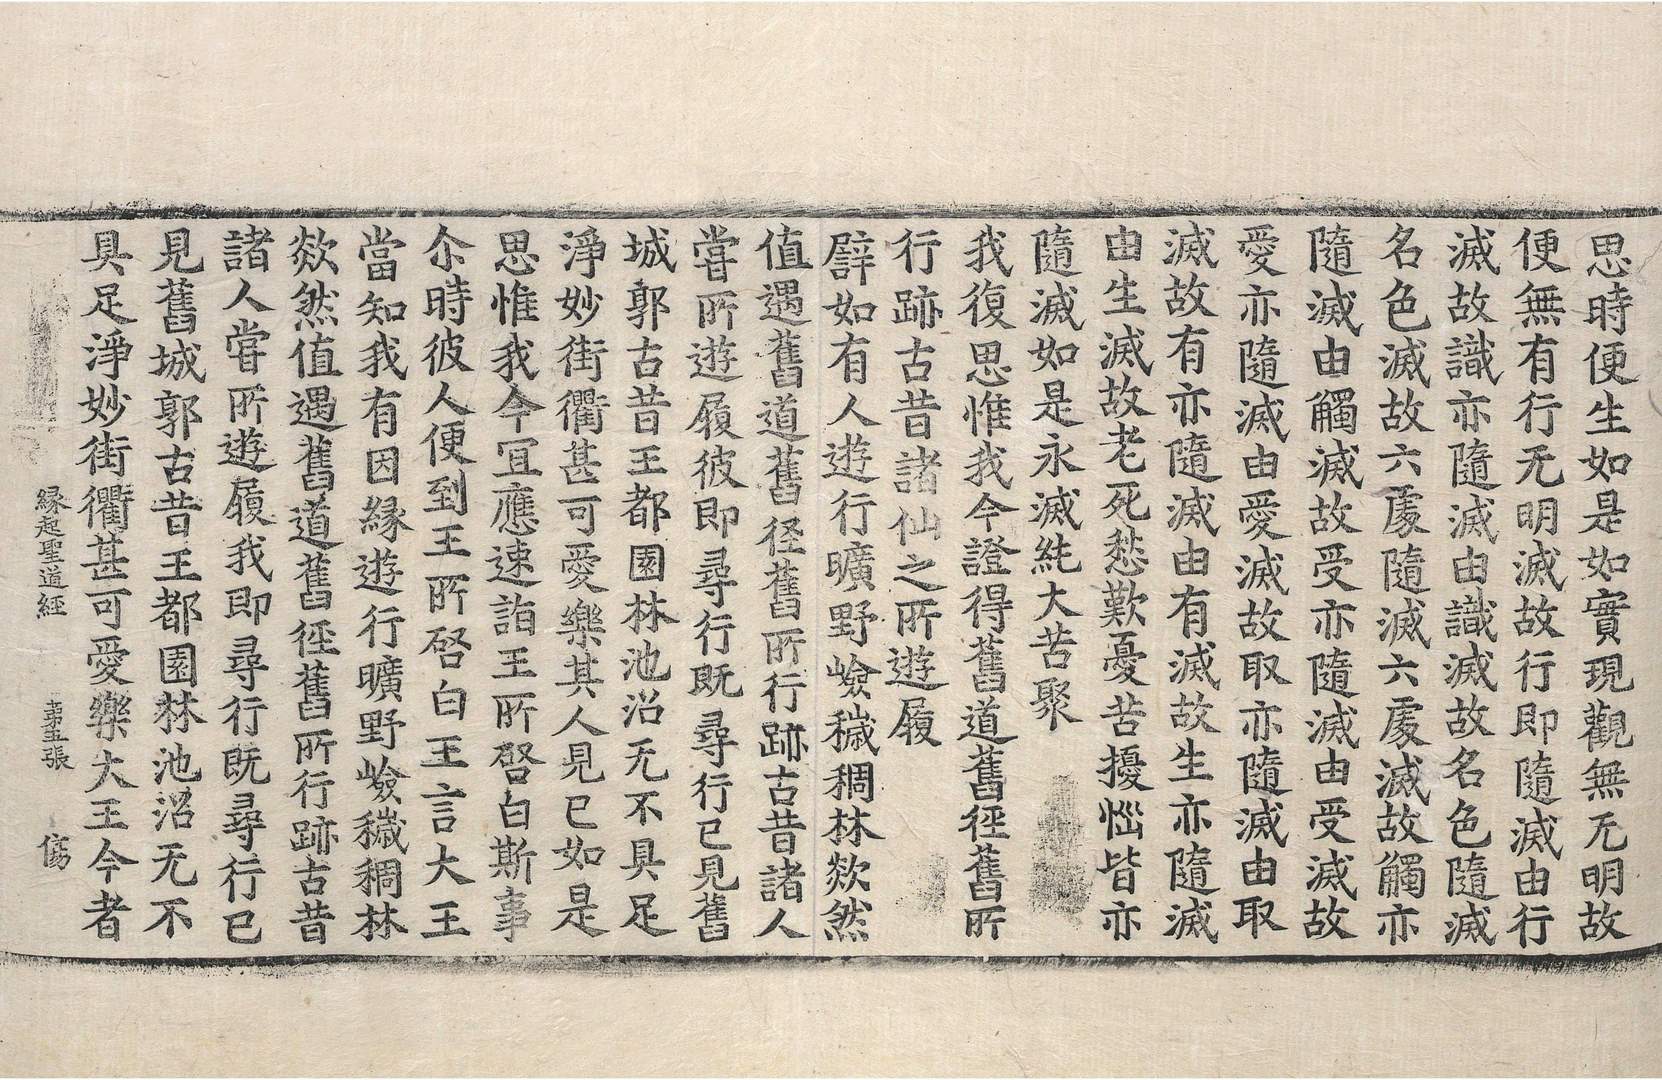 思時便生如是如實現觀無无明故
便無有行无明滅故行即隨滅由行
滅故識亦隨滅由識滅故名色隨滅
名色滅故六處隨滅六處滅故觸亦
隨滅由觸滅故受亦隨滅由受滅故
愛亦隨滅由愛滅故取亦隨滅由取
滅故有亦隨滅由有滅故生亦隨滅
由生滅故老死愁歎憂苦擾惱皆亦
隨滅如是永滅純大苦聚
我復思惟我今證得舊道舊徑舊所
行跡古昔諸仙之所遊履
譬如有人遊行曠野嶮穢稠林欻然
值遇舊道舊径舊所行跡古昔諸人
嘗所遊履彼即尋行既尋行已見舊
城郭古昔王都園林池沼无不具足
淨妙街衢甚可愛樂其人見已如是
思惟我今冝應速詣王所啓白斯事
尒時彼人便到王所啓白王言大王
當知我有因縁遊行曠野嶮穢稠林
欻然值遇舊道舊径舊所行跡古昔
諸人嘗所遊履我即尋行既尋行已
見舊城郭古昔王都園林池沼无不
具足淨妙街衢甚可愛樂大王今者
縁起聖道經 苐五張 傷